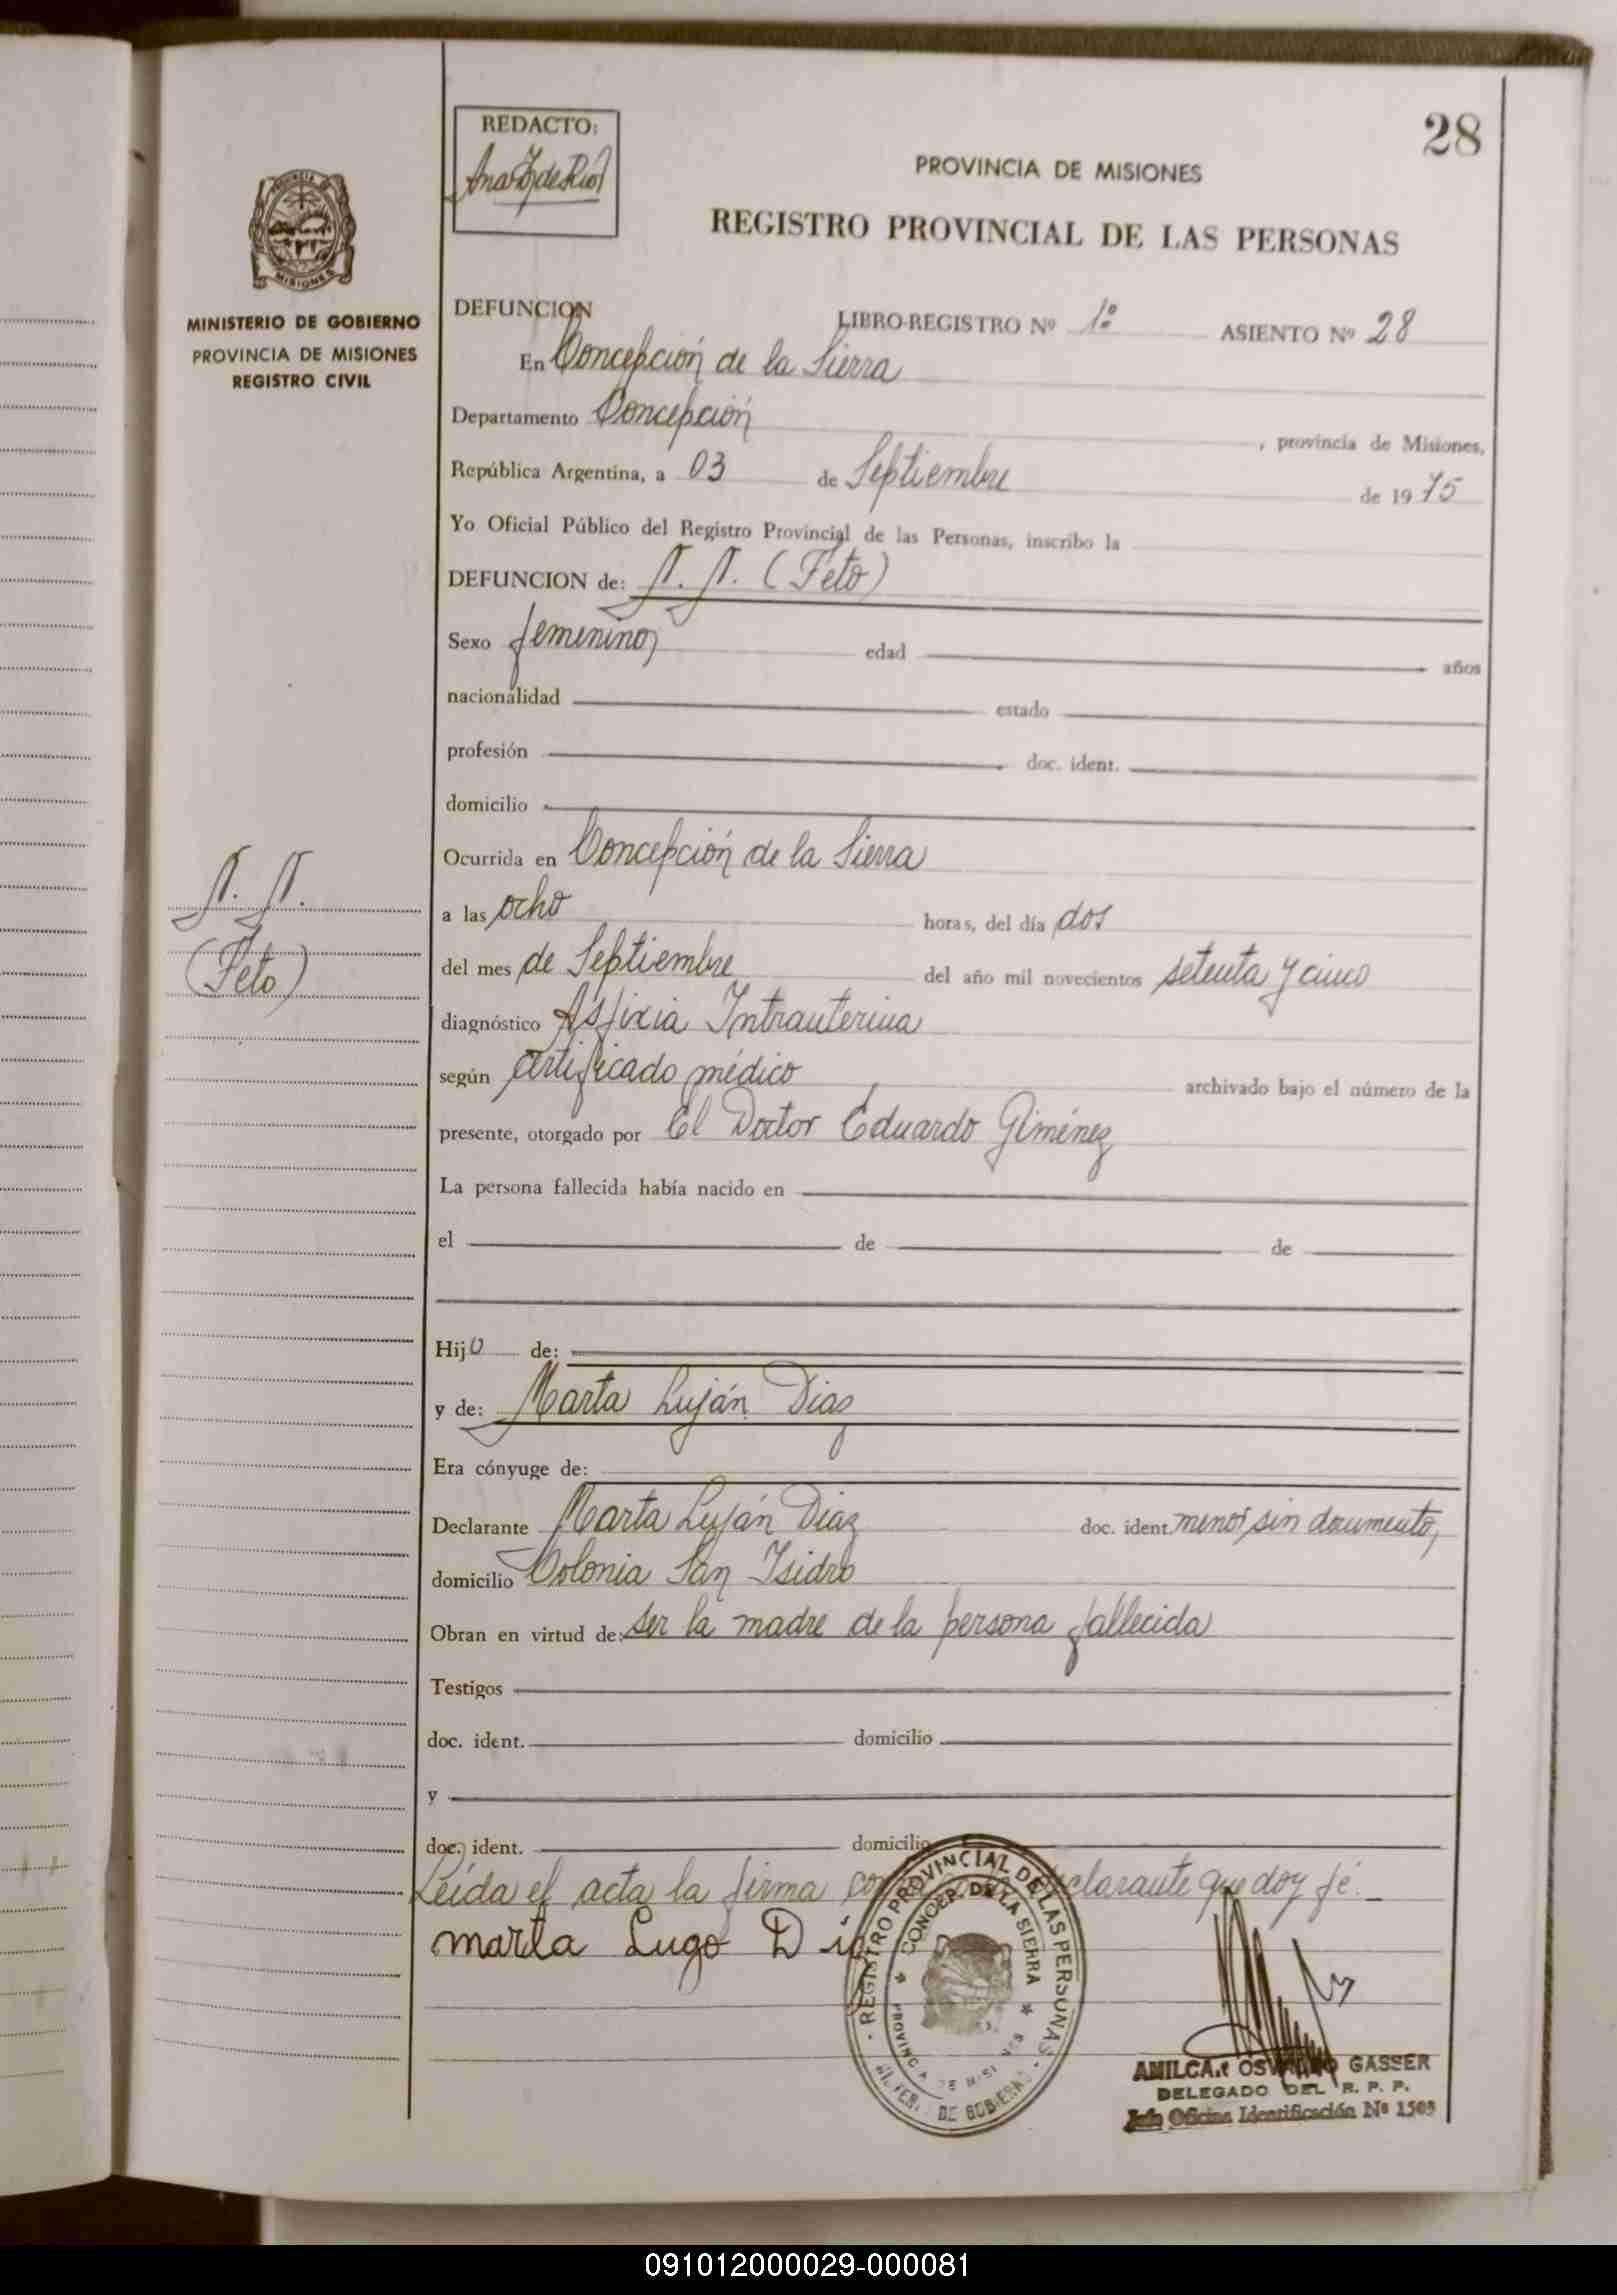 28
REDACTO:
PROVINCIA DE MISIONES
REGISTRO PROVINCIAL DE LAS PERSONAS
PROVINCIA DE
MISIONES
MINISTERIO DE GOBIERNO
PROVINCIA DE MISIONES
REGISTRO CIVIL
DEFUNCION
LIBRO-REGISTRO Nº 1º ASIENTO Nº 28
En Concepción de la Sierra
Departamento Concepción, provincia de Misiones,
República Argentina, a 03 de Septiembre de 1975
Yo Oficial Público del Registro Provincial de las Personas, inscribo la
DEFUNCION de: N. N. (Feto)
Sexo femenino, edad años
nacionalidad estado
profesión doc. ident.
domicilio
Ocurrida en Concepción de la Sierra
N. N.
(Feto)
a las ocho horas, del día dos
del mes de Septiembre del año mil novecientos setenta y cinco
diagnóstico Asfixia Intrauterina
según certificado médico archivado bajo el número de la
presente, otorgado por El Doctor Eduardo Giménez
La persona fallecida había nacido en
el de de
Hijo de:
y de: Marta Luján Diaz
Era cónyuge de:
Declarante Marta Luján Diaz doc. ident. menor, sin documento,
domicilio Colonia San Isidro
Obran en virtud de: ser la madre de la persona fallecida
Testigos
doc. ident. domicilio
y
doc. ident. domicilio
Leída el acta la firma declarante que doy fé.
marta Lugo
REGISTRO PROVINCIAL DE LAS PERSONAS
CONCEP. DE LA SIERRA
PROVINCIA DE MISIONES
DE GOBIERNO
AMILCAR OSVALDO GASSER
DELEGADO DEL R. P. P.
Jefe Oficina Identificación Nº 1503
091012000029-000081